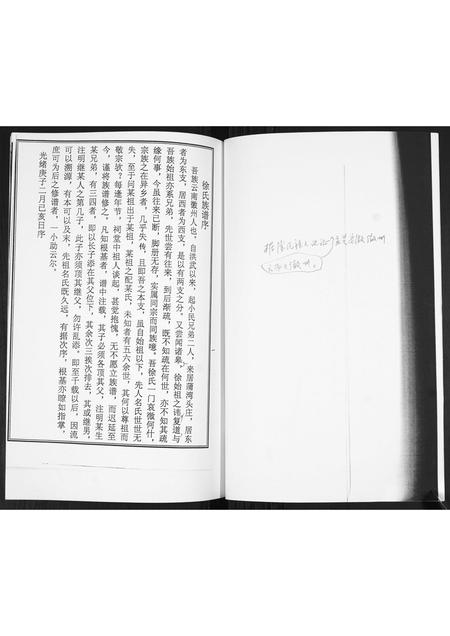 徐氏族谱序
吾族云南徽州人也。自洪武以来,起小民兄弟二人,来居蒲湾头庄,居东
者为东支,居西者为西支,是以有两支之分。又尝闻诸皋,徐始祖之讳复道与
吾族始祖亦系兄弟,先世尝有往来,到后渐疏,既不知疏在何世,亦不知其疏
缘何事,今虽往来已断,脚册无存,实属同宗而同族噫。吾徐氏一门衰微何什,
宗族之在异乡者,几乎失传,且即吾之本支,虽自始祖以下,先人名氏世世无
失,至于问某祖出于某祖,某祖之配某氏,未知者有五六余世,其何以尊祖而
敬宗欤?每逢年节,祠堂中祖人谈起,甚觉抱愧,无不愿立族谱,而迟延至
今,谨将族谱修之。凡知根基者,谱中注载,其子必须各顶其父,注明某生
某兄弟,有三四者,即以长子添在其父位下,其余次三挨次排去,其或继男,
注明继某人之第几子,此子亦须顶其继父,勿许乱添。即至千载以后,因流
可以溯源,有本可以及末,先祖名氏既久远,有据次序,根基亦瞭如指掌,
庶可为后之修谱者,一小助云尔。
光绪庚子二月己亥日序